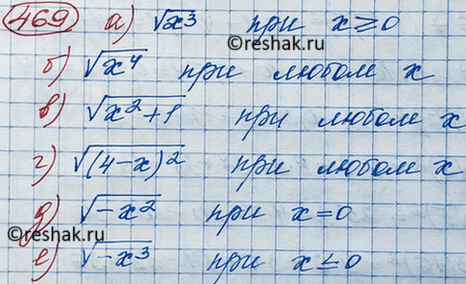 469 а) √x³ при x ≥ 0
©reshak.ru
б) √x⁴ при любом x
в) √x²+1 при любом x
г) √(4-x)² при любом x
д) √-x² при x=0
©reshak.ru
е) √-x³ при x ≤ 0